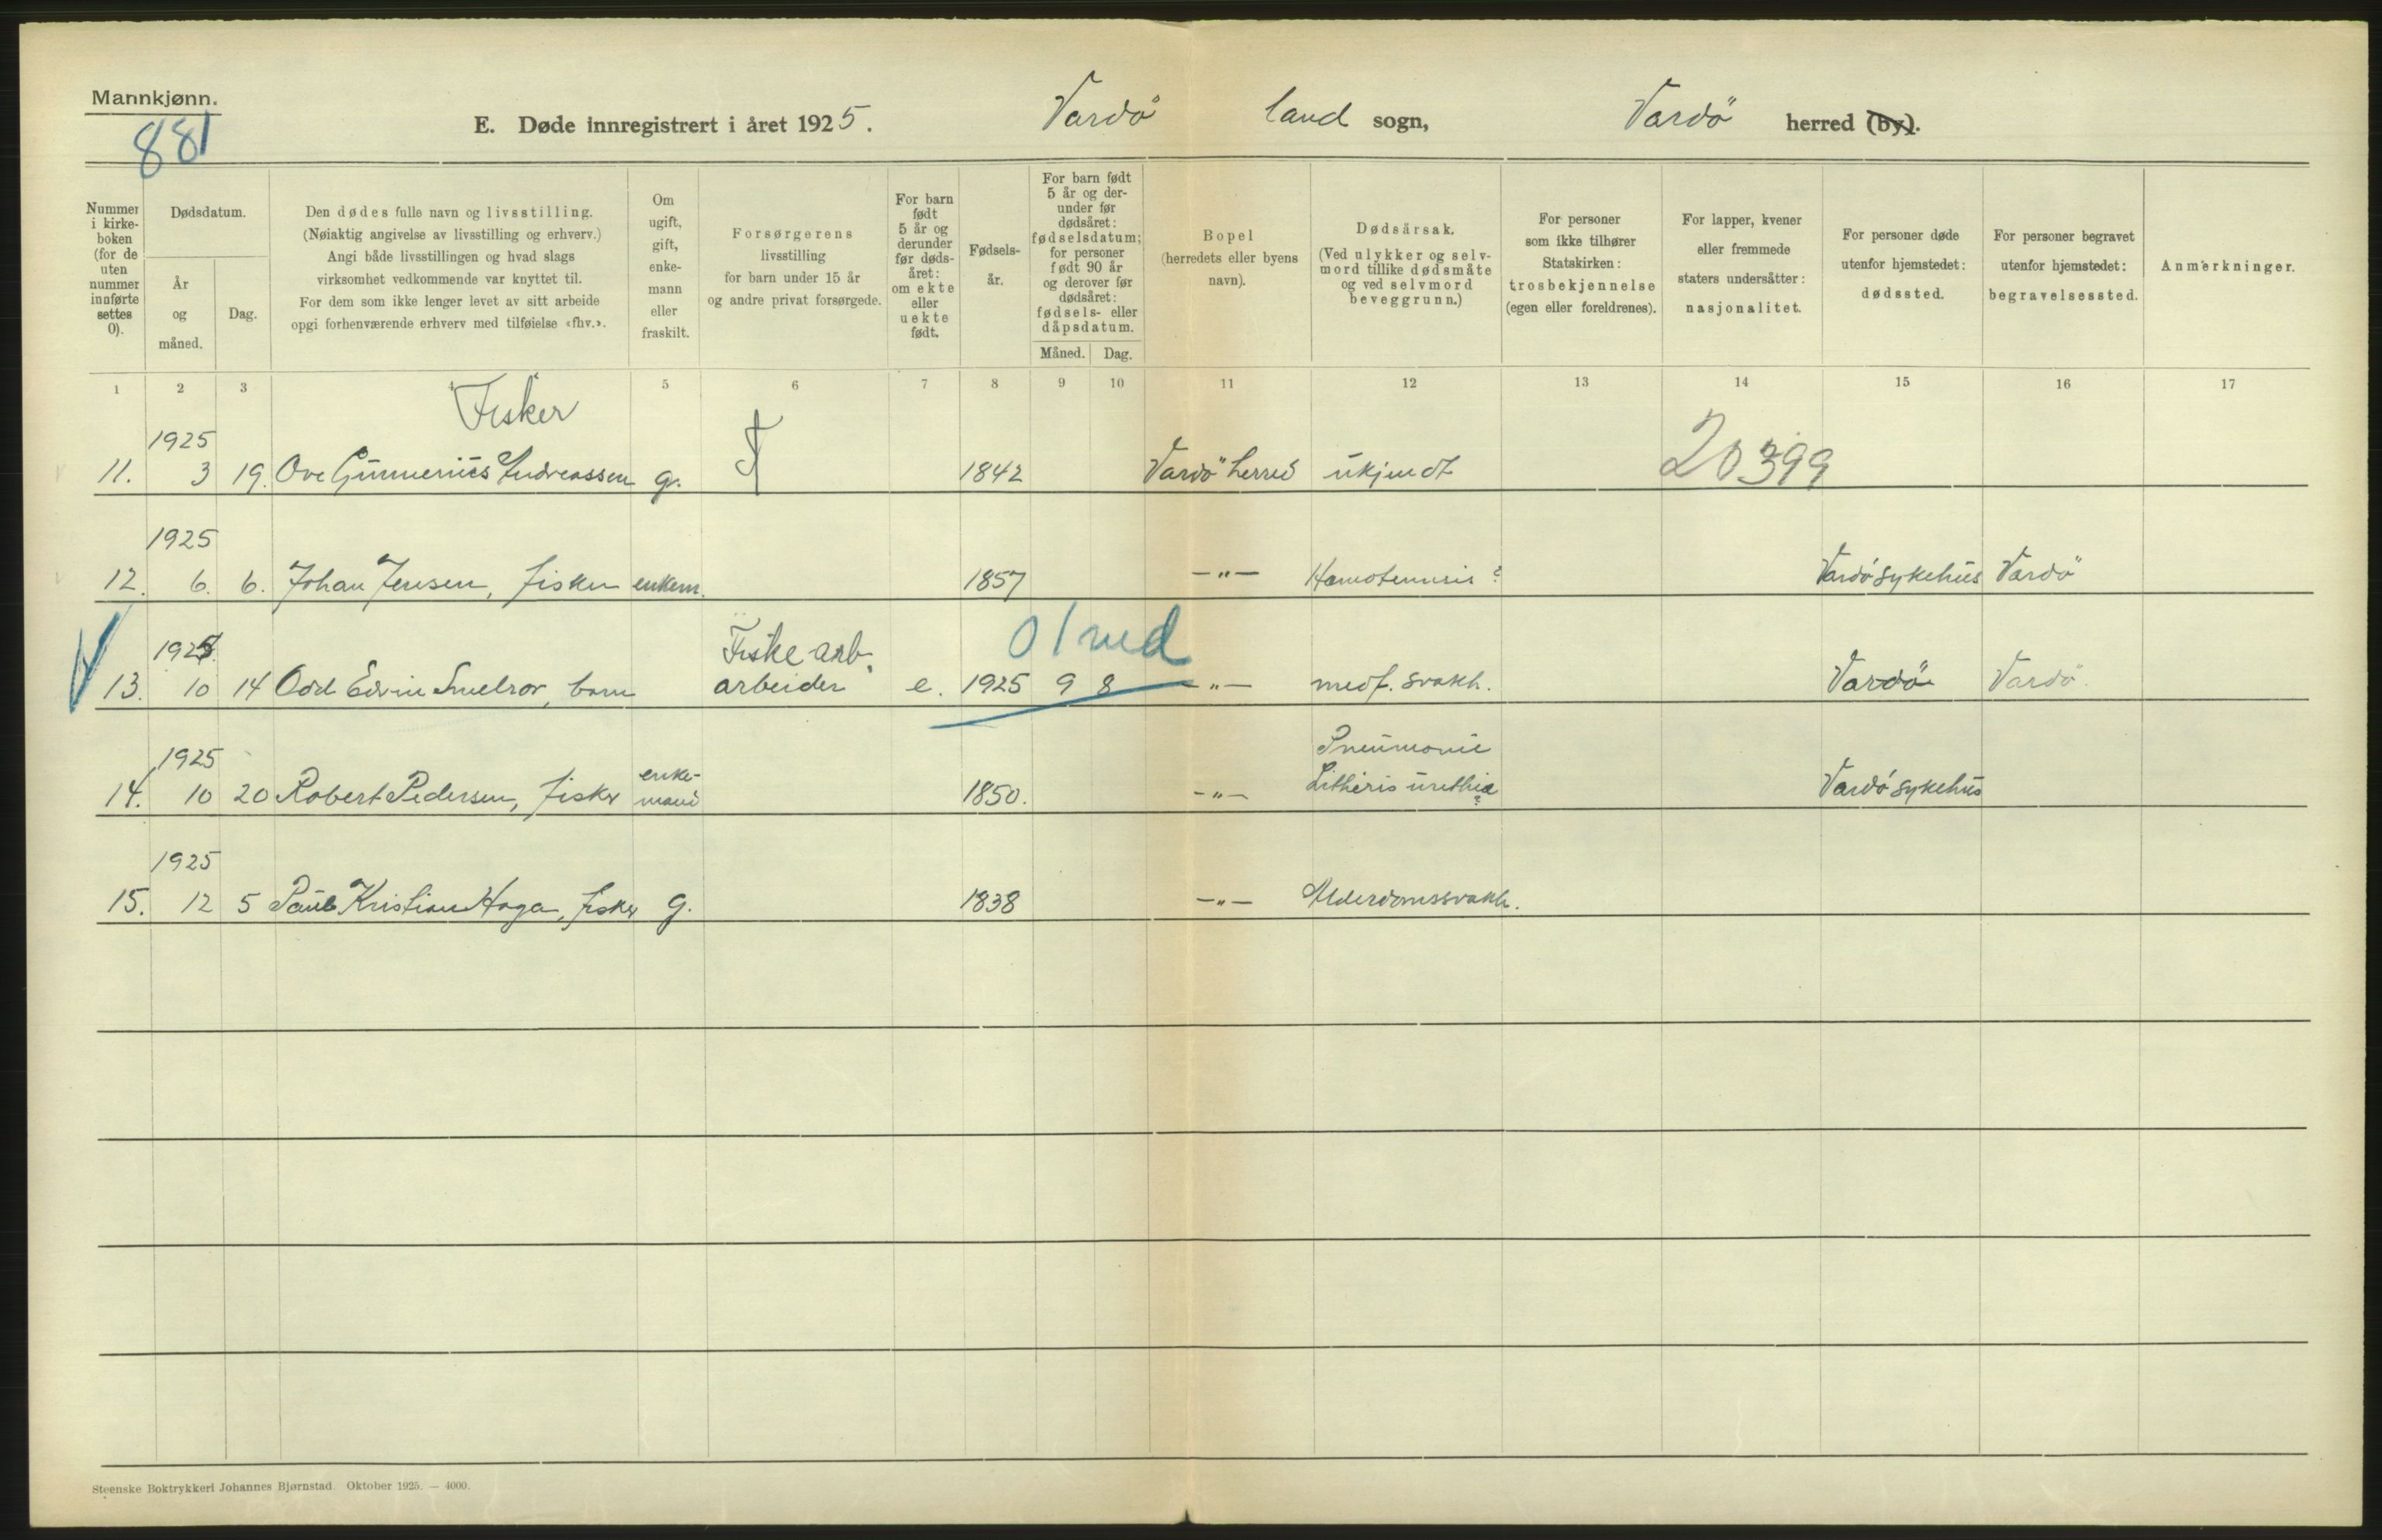 Mannkjønn.
881
E. Døde innregistrert i året 1925. Vardö land sogn, Vardö herred (by).
Nummer i kirke-boken (for de uten nummer innførte settes 0).
Dødsdatum.
År og måned.
Dag.
Den dødes fulle navn og livsstilling.
(Nøiaktig angivelse av livsstilling og erhverv.)
Angi både livsstillingen og hvad slags
virksomhet vedkommende var knyttet til.
For dem som ikke lenger levet av sitt arbeide
opgi forhenværende erhverv med tilføielse «fhv.».
Om ugift, gift, enke-mann eller fraskilt.
Forsørgerens
livsstilling
for barn under 15 år
og andre privat forsørgede.
For barn født 5 år og derunder før døds-året: om ekte eller uekte født.
Fødsels-år.
For barn født 5 år og der-under før dødsåret: fødselsdatum; for personer født 90 år og derover før dødsåret: fødsels- eller dåpsdatum.
Måned. Dag.
Bopel
(herredets eller byens
navn).
Dødsårsak.
(Ved ulykker og selv-
mord tillike dødsmåte
og ved selvmord
beveggrunn.)
For personer
som ikke tilhører
Statskirken:
trosbekjennelse
(egen eller foreldrenes).
For lapper, kvener
eller fremmede
staters undersåtter:
nasjonalitet.
For personer døde
utenfor hjemstedet:
dødssted.
For personer begravet
utenfor hjemstedet:
begravelsessted.
Anmerkninger.
1 2 3 4 5 6 7 8 9 10 11 12 13 14 15 16 17
Fisker
1925
11. 3 19. Ove Gunnerius Andreassen g. 1842 Vardö herred ukjendt 20399
1925
12. 6. 6. Johan Jensen, fisker enkem. 1857 -"- Vardö sykehus Vardö
01 md
1925. Fiske arb.
13. 10 14 Odd Edvin Smelror, barn arbeider e. 1925 9 8 -"- medf. svakh. Vardö Vardö.
1925 enke- Pneumonie
14. 10 20 Robert Pedersen, fisker mand 1850. -"- Vardö sykehus
1925
15. 12 5 Paul Kristian Haga, fisker g. 1838 -"- Alderdomssvakh.
Steenske Boktrykkeri Johannes Bjørnstad. Oktober 1925. — 4000.